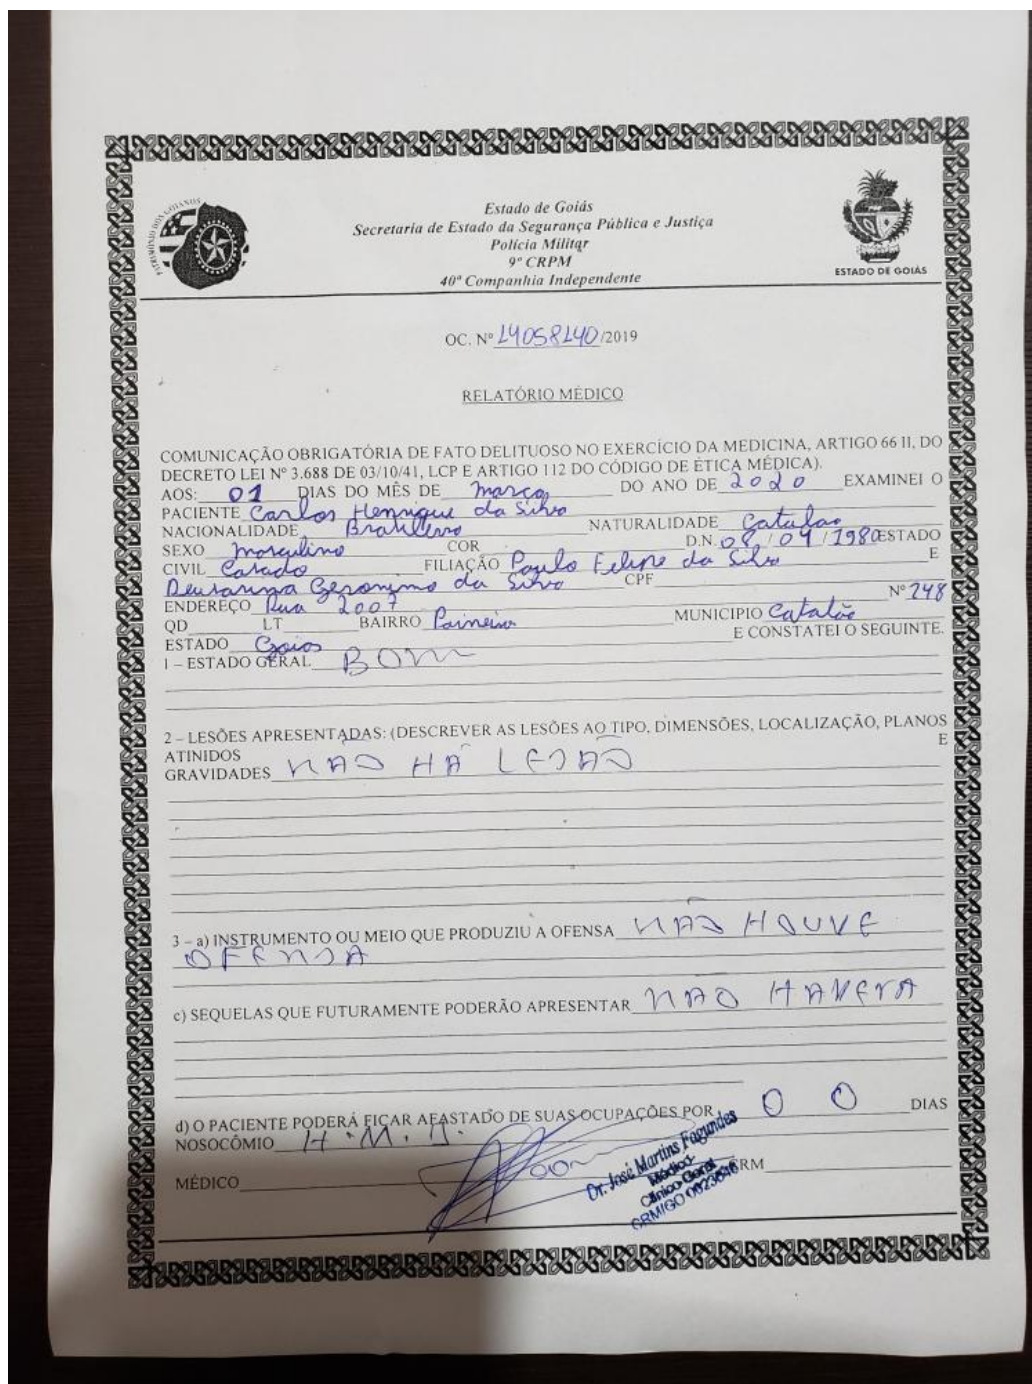 PATRIMÔNIO DOS GOIANOS
Estado de Goiás
Secretaria de Estado da Segurança Pública e Justiça
Polícia Militar
9º CRPM
40ª Companhia Independente
ESTADO DE GOIÁS
OC. Nº 14058140/2019
RELATÓRIO MÉDICO
COMUNICAÇÃO OBRIGATÓRIA DE FATO DELITUOSO NO EXERCÍCIO DA MEDICINA, ARTIGO 66 II, DO
DECRETO LEI Nº 3.688 DE 03/10/41, LCP E ARTIGO 112 DO CÓDIGO DE ÉTICA MÉDICA).
AOS: 01 DIAS DO MÊS DE março DO ANO DE 2020 EXAMINEI O
PACIENTE Carlos Henrique da Silva
NACIONALIDADE Brasileiro NATURALIDADE Catalao
SEXO masculino COR D.N. 08/09/1980 ESTADO
CIVIL Casado FILIAÇÃO Paulo Felipe da Silva E
Geronimo da Silva CPF
ENDEREÇO Rua 2007 Nº 248
QD LT BAIRRO MUNICIPIO Catalão
ESTADO Goias E CONSTATEI O SEGUINTE.
1 – ESTADO GERAL BOM
2 – LESÕES APRESENTADAS: (DESCREVER AS LESÕES AO TIPO, DIMENSÕES, LOCALIZAÇÃO, PLANOS
ATINIDOS E
GRAVIDADES NÃO HÁ LESÃO
3 – a) INSTRUMENTO OU MEIO QUE PRODUZIU A OFENSA NÃO HOUVE
OFENSA
c) SEQUELAS QUE FUTURAMENTE PODERÃO APRESENTAR NÃO HAVERA
d) O PACIENTE PODERÁ FICAR AFASTADO DE SUAS OCUPAÇÕES POR 0 0 DIAS
NOSOCÔMIO
MÉDICO CRM
Dr. José Martins Fagundes
Médico
Clínico Geral